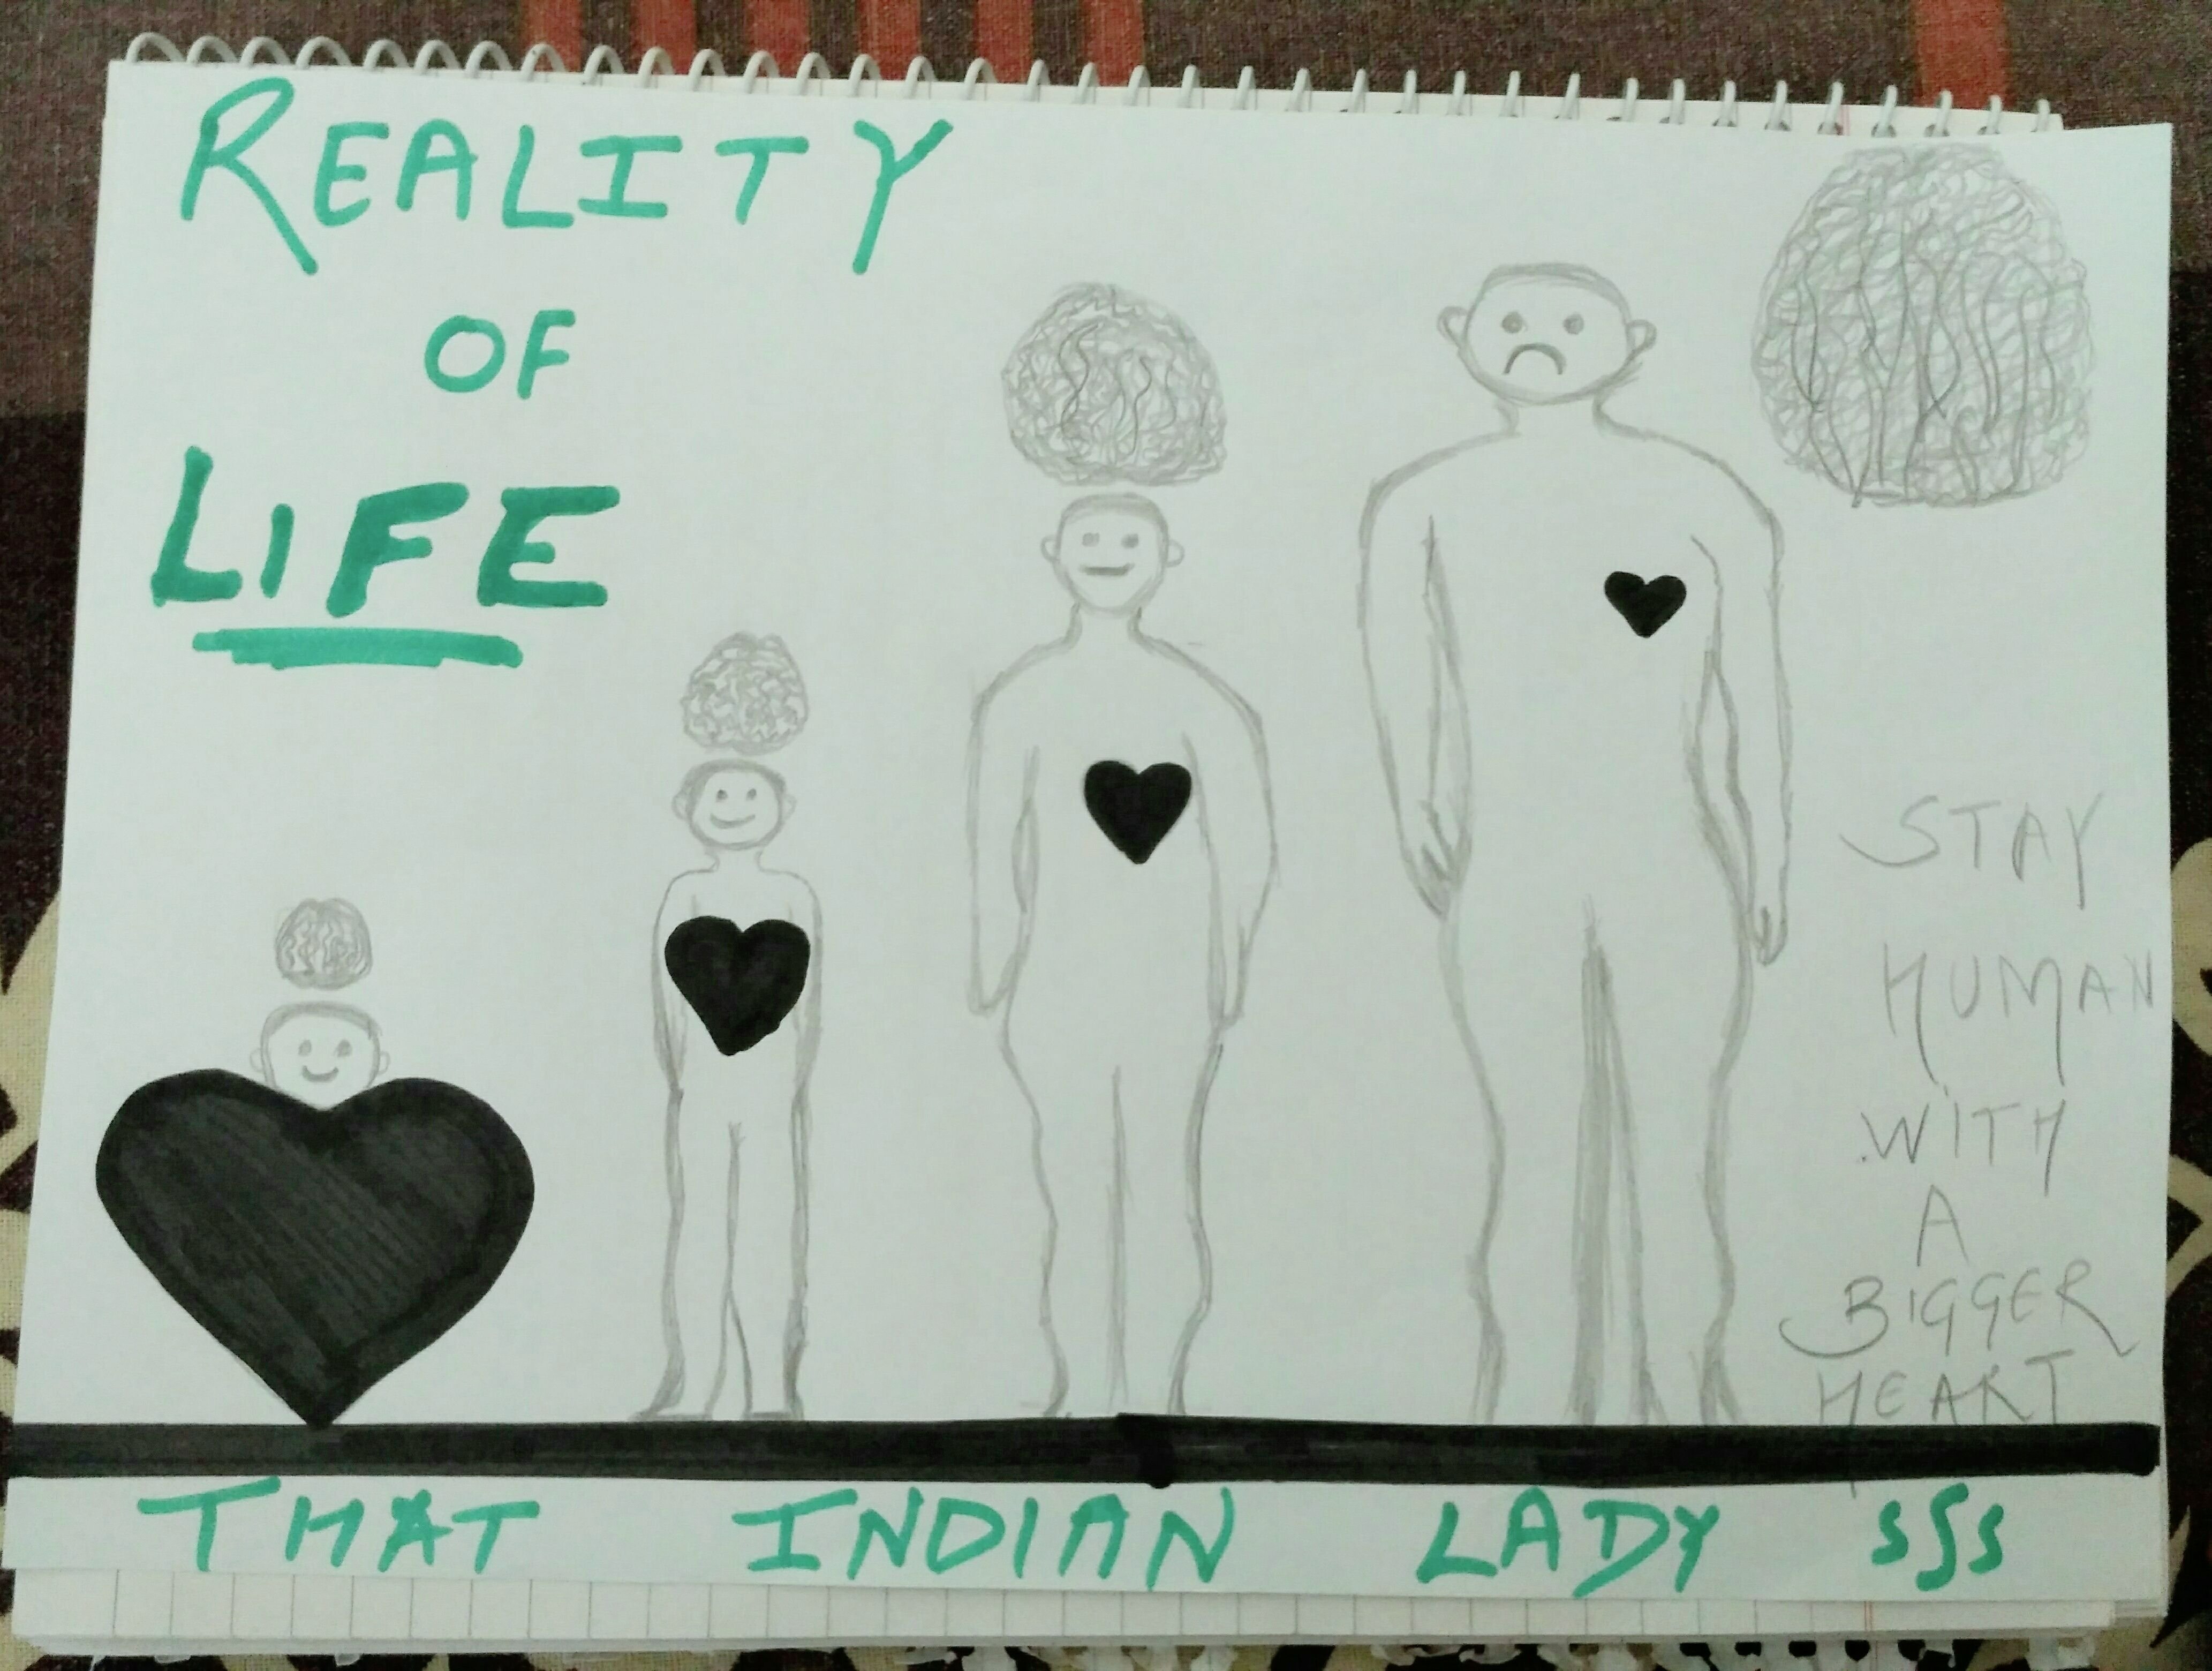 REALITY
OF
LIFE
STAY
HUMAN
WITH
A
BIGGER
HEART
THAT INDIAN LADY sss